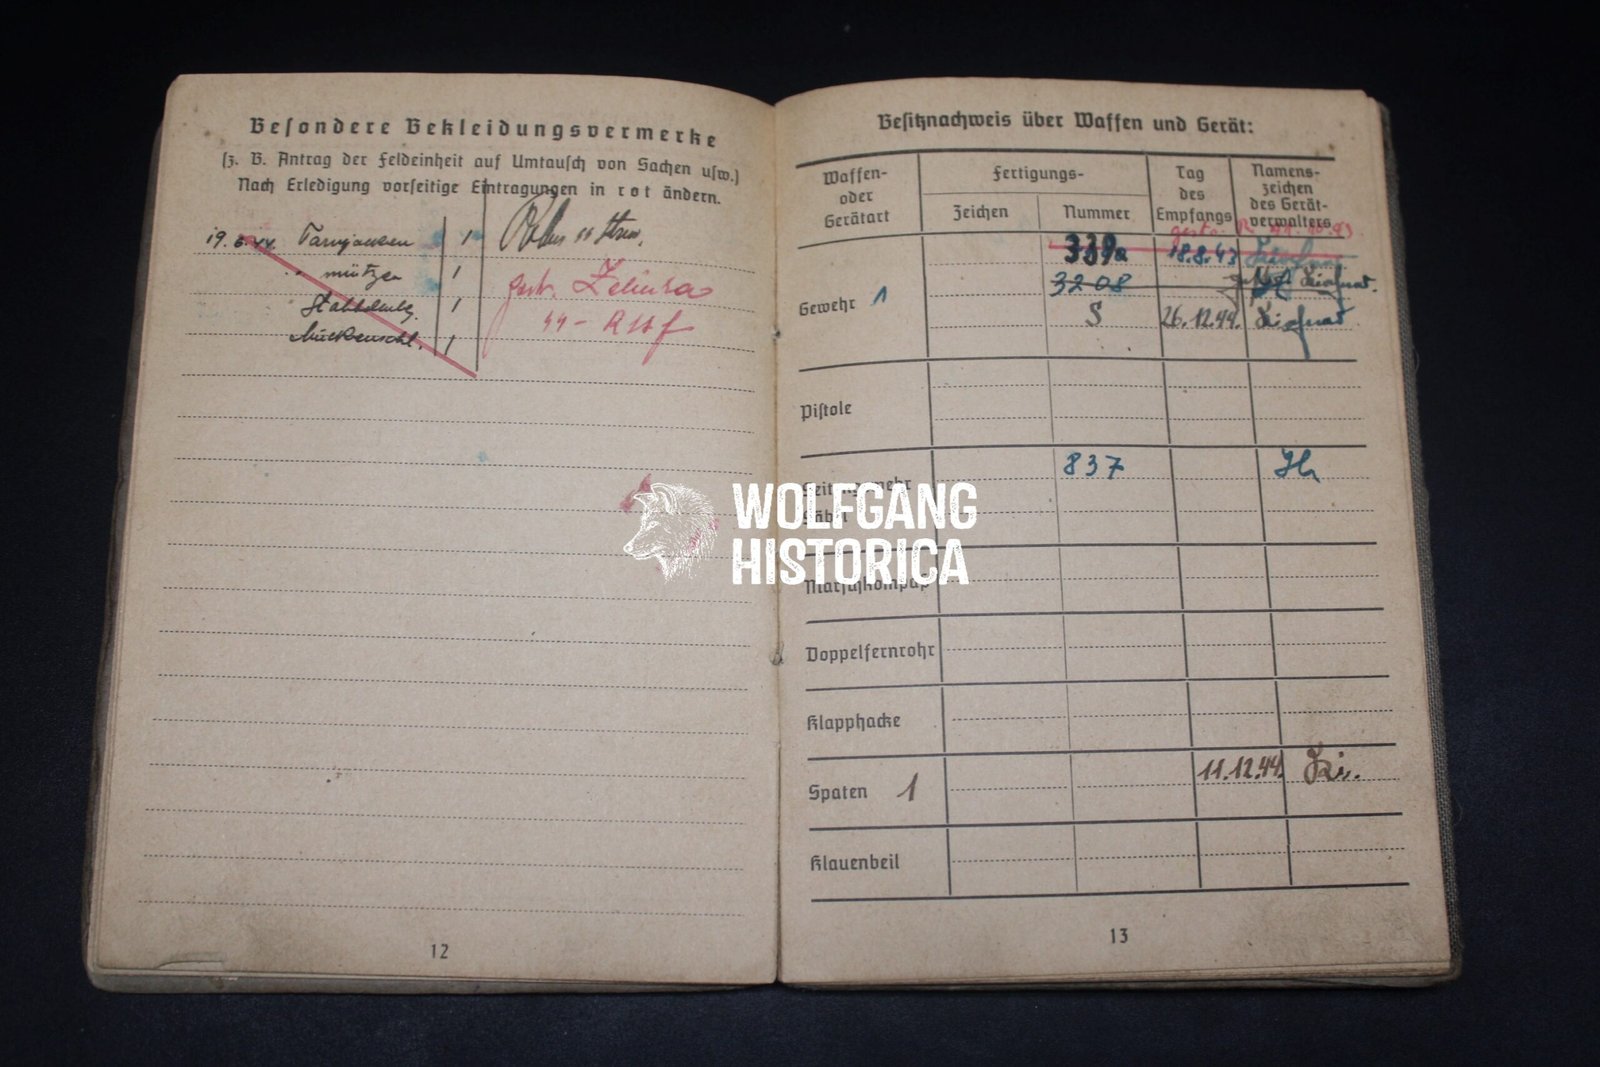 Besondere Bekleidungsvermerke
(z. B. Antrag der Feldeinheit auf Umtausch von Sachen usw.)
Nach Erledigung vorseitige Eintragungen in rot ändern.
19. 6. 44. Tarnjacken 1
" mützen 1
1
Mückenschl. 1
gestr.
12
Besitznachweis über Waffen und Gerät:
Waffen- oder Gerätart
Fertigungs-
Zeichen
Nummer
Tag des Empfangs
Namens- zeichen des Gerät- verwalters
Gewehr 1
339a 18.8.43
3208
S 26.12.44.
Pistole
Seitengewehr 837
Säbel
Marschkompaß
Doppelfernrohr
Klapphacke
Spaten 1 11.12.44.
Klauenbeil
13
WOLFGANG
HISTORICA